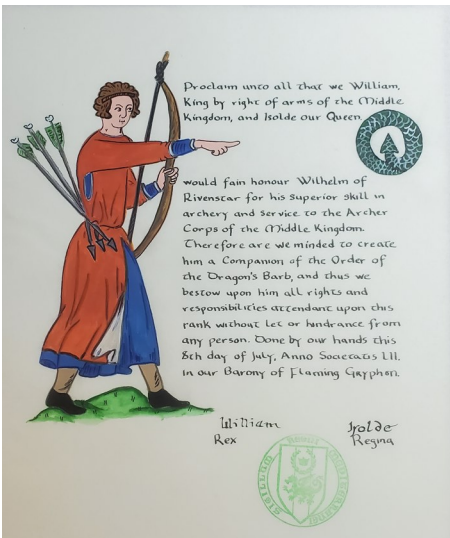 Proclaim unto all that we William,
King by right of arms of the Middle
Kingdom, and Isolde our Queen
would fain honour Wilhelm of
Rivenstar for his superior skill in
archery and service to the Archer
Corps of the Middle Kingdom.
Therefore are we minded to create
him a Companion of the Order of
the Dragon's Barb, and thus we
bestow upon him all rights and
responsibilities attendant upon this
rank without let or hindrance from
any person. Done by our hands this
8th day of July, Anno Societatis LII,
in our Barony of Flaming Gryphon.
William Isolde
Rex Regina